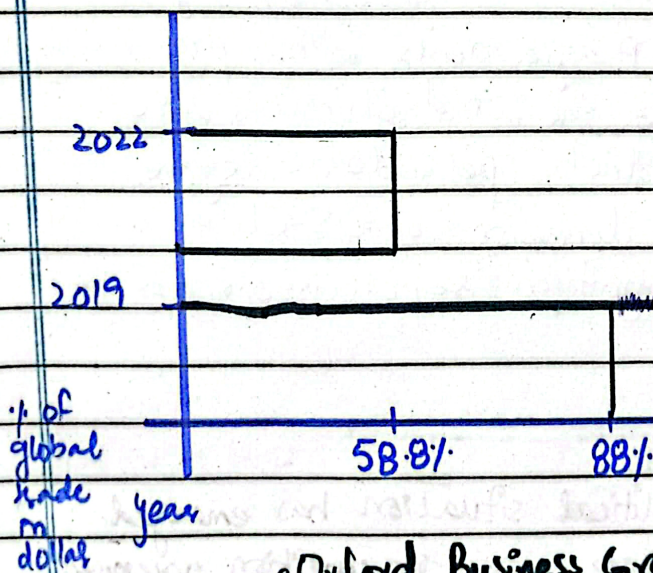 2022
2019
% of
global
trade
in
dollar
year
58.8%
88%
Oxford Business Gro